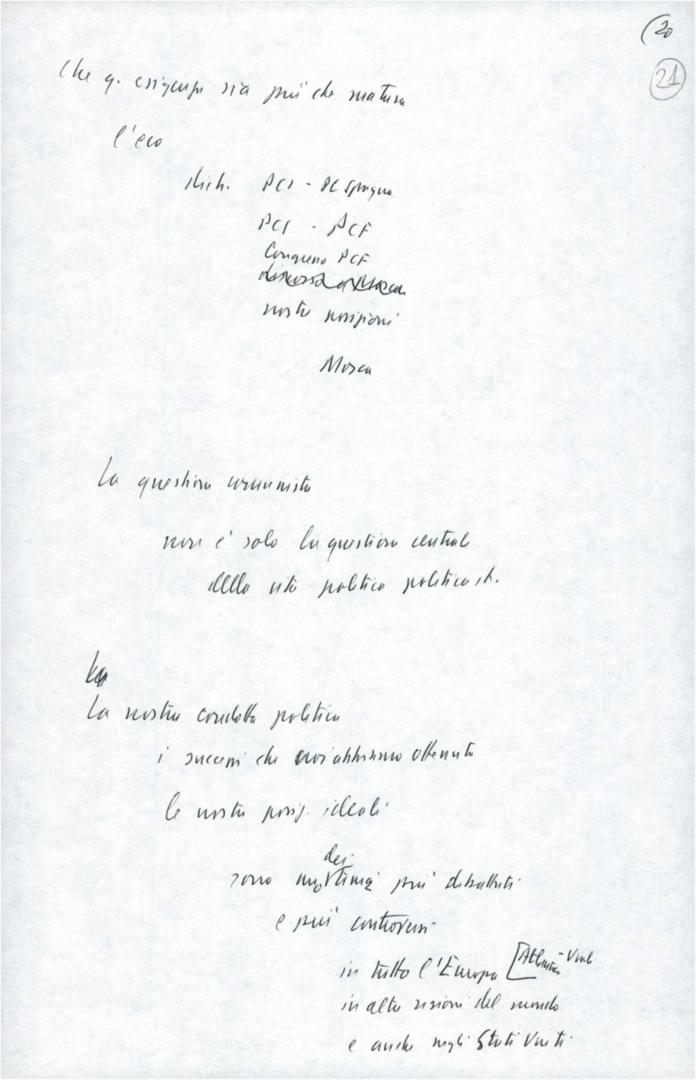 (20
21
Che q. esigenza sia più che matura
l'eco
dich. PCI - PC Spagna
PCI - PCF
Congresso PCF
nostre posizioni
Mosca
La questione comunista
non è solo la questione centrale
della vita politica politica it.
La
La nostra condotta politica
i successi che noi abbiamo ottenuto
le nostre posiz. ideali
dei
sono più dibattuti
e più controversi
in tutto l'Europa [
in altre regioni del mondo
e anche negli Stati Uniti